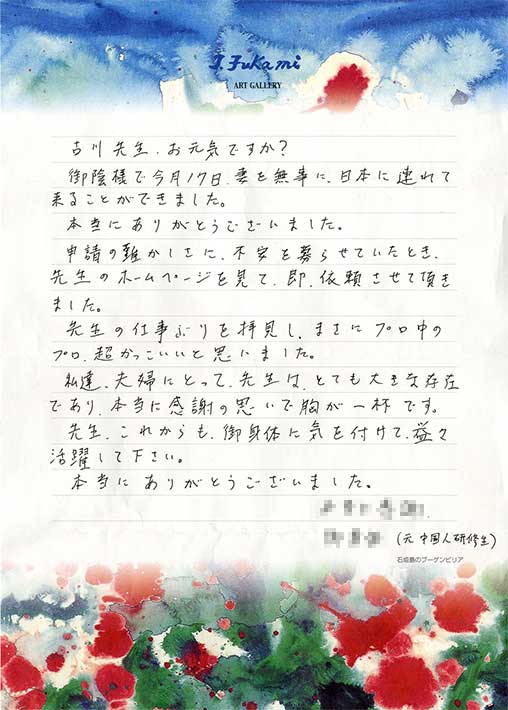 J. Fukami
ART GALLERY
古川先生、お元気ですか?
御陰様で今月17日、妻を無事に、日本に連れて
来ることができました。
本当にありがとうございました。
申請の難かしさに、不安を募らせていたとき、
先生のホームページを見て、即、依頼させて頂き
ました。
先生の仕事ぶりを拝見し、まさにプロ中の
プロ、超かっこいいと思いました。
私達、夫婦にとって、先生は、とても大きな存在
であり、本当に感謝の思いで胸が一杯です。
先生、これからも、御身体に気を付けて、益々
活躍して下さい。
本当にありがとうございました。
(元中国人研修生)
石垣島のブーゲンビリア